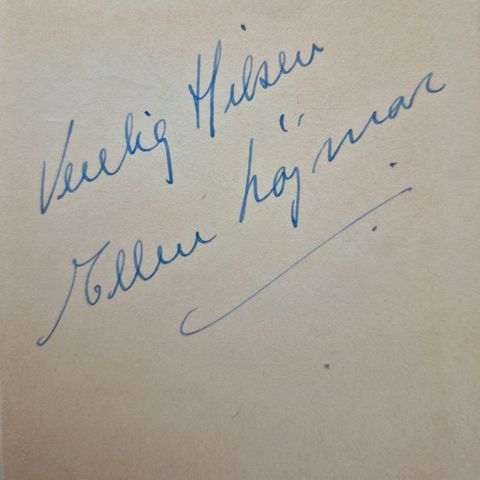 Venlig Hilsen
Ellen Højmar